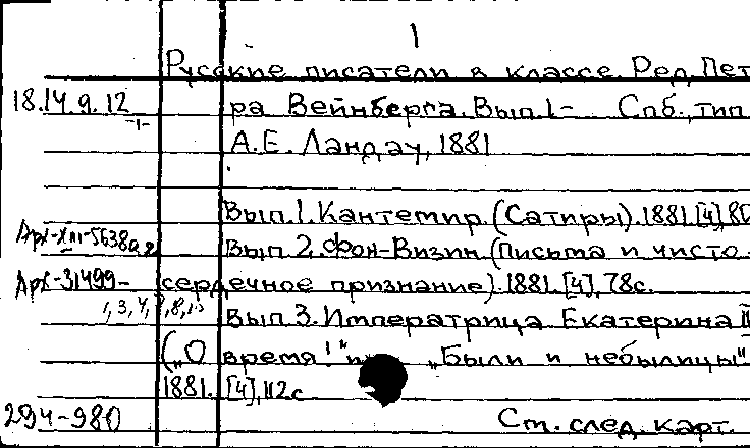 1
Русские писатели в классе. Ред. Пет
18.14.9.12 ра Вейнберга. Вып. 1- Спб., тип.
-1-
А.Е. Ландау, 1881
Вып. 1. Кантемир. (Сатиры). 1881. [4], 80
Вып. 2. Фон-Визин (Письма и чисто-
Арх-31499- сердечное признание). 1881. [4], 78с.
1, 3, 4,
Вып. 3. Императрица Екатерина II
(„О время!" и „Были и небылицы"
1881. [4], 112с
294-980 См. след. карт.